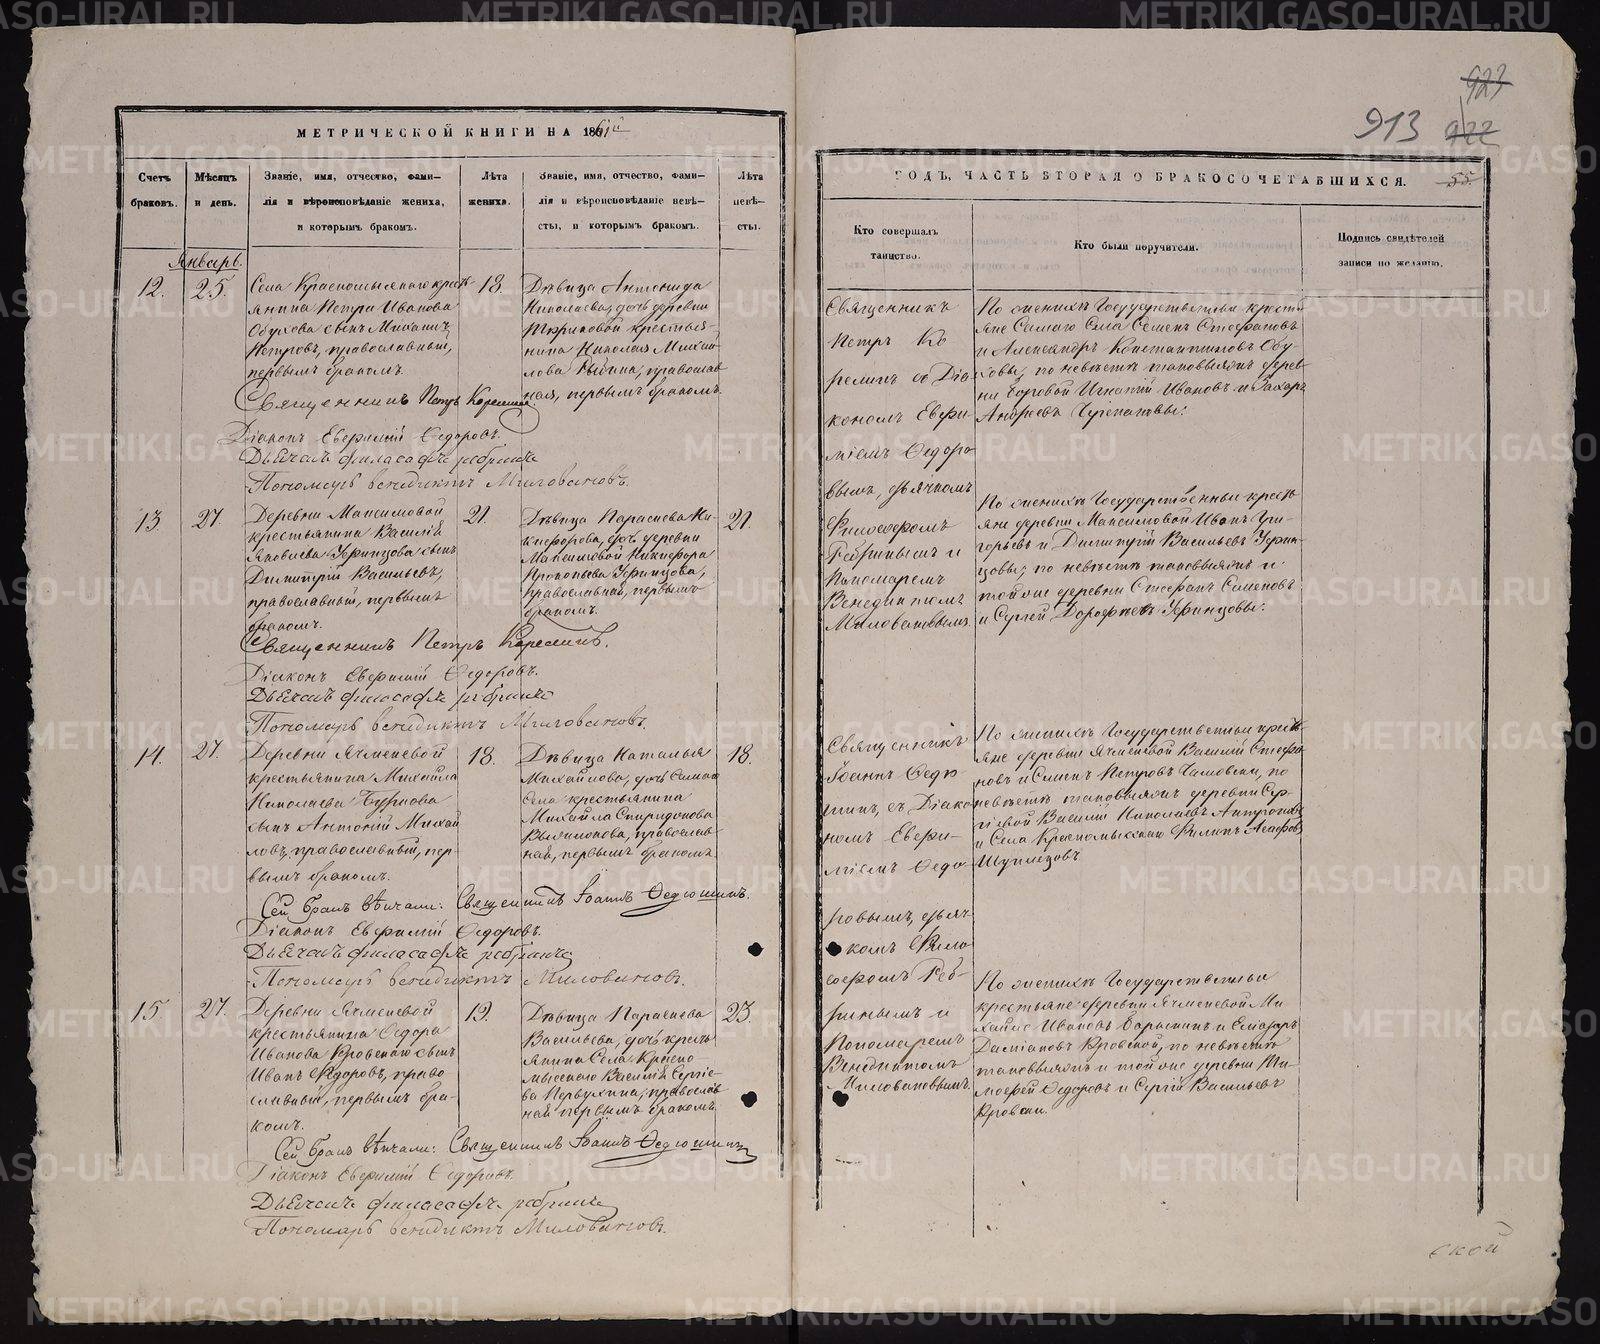 МЕТРИЧЕСКОЙ КНИГИ НА 1861й
Счетъ браковъ.
Мѣсяцъ и день.
Званіе, имя, отчество, фами-
лія и вѣроисповѣданіе жениха,
и которымъ бракомъ.
Лѣта жениха.
Званіе, имя, отчество, фами-
лія и вѣроисповѣданіе невѣ-
сты, и которымъ бракомъ.
Лѣта невѣ-
сты.
Январь.
12.
25.
Села Красномыскаго крест
янина Петра Иванова
Обухова сынъ Михаилъ
Петровъ, православный,
первымъ бракомъ.
18.
Дѣвица Антонида
Николаева, дочь деревни
крестья-
нина Николая Михай-
лова православ
ная, первымъ бракомъ.
Священникъ Петръ Корелинъ
Діаконъ Евфимій Ѳедоровъ.
Дьячокъ Филасафъ ребринъ
Пономарь венидиктъ Миловановъ.
13
27.
Деревни Максимовой
крестьянина Василія
Яковлева Уфинцова сынъ
Димитрій Васильевъ,
православный, первымъ
бракомъ.
21.
Дѣвица Параскева Ни-
кифорова, дочь деревни
Максимовой Никифора
Прокопьева Уфинцова,
православная, первымъ
бракомъ.
21.
Священникъ Петръ Корелинъ.
Діаконъ Евфимій Ѳедоровъ.
Дьячокъ филасафъ ребринъ
Пономарь венидиктъ Миловановъ.
14.
27.
Деревни Ячменевой
крестьянина Михайла
Николаева
сынъ Антоній Михай
ловъ, православный, пер-
вымъ бракомъ.
18.
Дѣвица Наталья
Михайлова, дочь Самаго
Села крестьянина
Михайла Спиридонова
православ-
ная, первымъ бракомъ.
18.
Сей бракъ вѣнчали: Священникъ Іоаннъ Ѳедюшинъ.
Діаконъ Евфимій Ѳедоровъ.
Дьячокъ филасафъ ребринъ
Пономарь венидиктъ Миловановъ.
15
27.
Деревни Ячменевой
крестьянина Ѳедора
Иванова Кровскаго сынъ
Иванъ Ѳедоровъ, право
славный, первымъ бра-
комъ.
19.
Дѣвица Параскева
Васильева, дочь крест
янина Села Красно-
мыскаго Василія Сергіе-
ва Первухина, православ
ная первымъ бракомъ
23.
Сей бракъ вѣнчали: Священникъ Іоаннъ Ѳедюшинъ
Діаконъ Евфимій Ѳедоровъ.
Дьячокъ филасафъ ребринъ
Пономарь венидиктъ Миловановъ.
923
913 922
ГОДЪ, ЧАСТЬ ВТОРАЯ О БРАКОСОЧЕТАВШИХСЯ.
55.
Кто совершалъ
таинство.
Кто были поручители.
Подпись свидѣтелей
записи по желанію.
Священникъ
Петръ Ко
релинъ съ Діа
кономъ Евфи-
міемъ Ѳедоро
вымъ, дьячкомъ
Философомъ
Ребринымъ и
Пономаремъ
Венедиктомъ
Миловановымъ.
По женихѣ Государственные кресть
яне Самаго Села Семенъ Стефановъ
и Александръ Константиновъ Обу-
ховы, по невѣстѣ таковыяжъ дерев
ни Боровой Игнатій Ивановъ и Захаръ
Андреевъ
По женихѣ Государственные кресть
яне деревни Максимовой Иванъ Гри-
горьевъ и Димитрій Васильевъ Уфин-
цовы; по невѣстѣ таковыяжъ и
тойже деревни Стефанъ Семеновъ
и Сергей Дорофеевъ Уфинцовы.
Священникъ
Іоаннъ Ѳедю
шинъ, съ Діако
номъ Евфи-
міемъ Ѳедо
ровымъ, дьяч
комъ Фило
софомъ Реб-
ринымъ и
Пономаремъ
Венедиктомъ
Миловановымъ.
По женихѣ Государственные кресть
яне деревни Ячменевой Василій Стефа
новъ и Семенъ Петровъ по
невѣстѣ таковыяжъ деревни Сер-
гіевой Василій Николаевъ Антроповъ
и Села Красномыскаго Филипъ Агафов
По женихѣ Государственные
крестьяне деревни Ячменевой Ми-
хаилъ Ивановъ и Елизаръ
Даміановъ Кровской, по невѣстѣ
таковыяжъ и тойже деревни Ти-
мофей Ѳедоровъ и Сергій Васильевъ
Кровски.
ской
METRIKI.GASO-URAL.RU